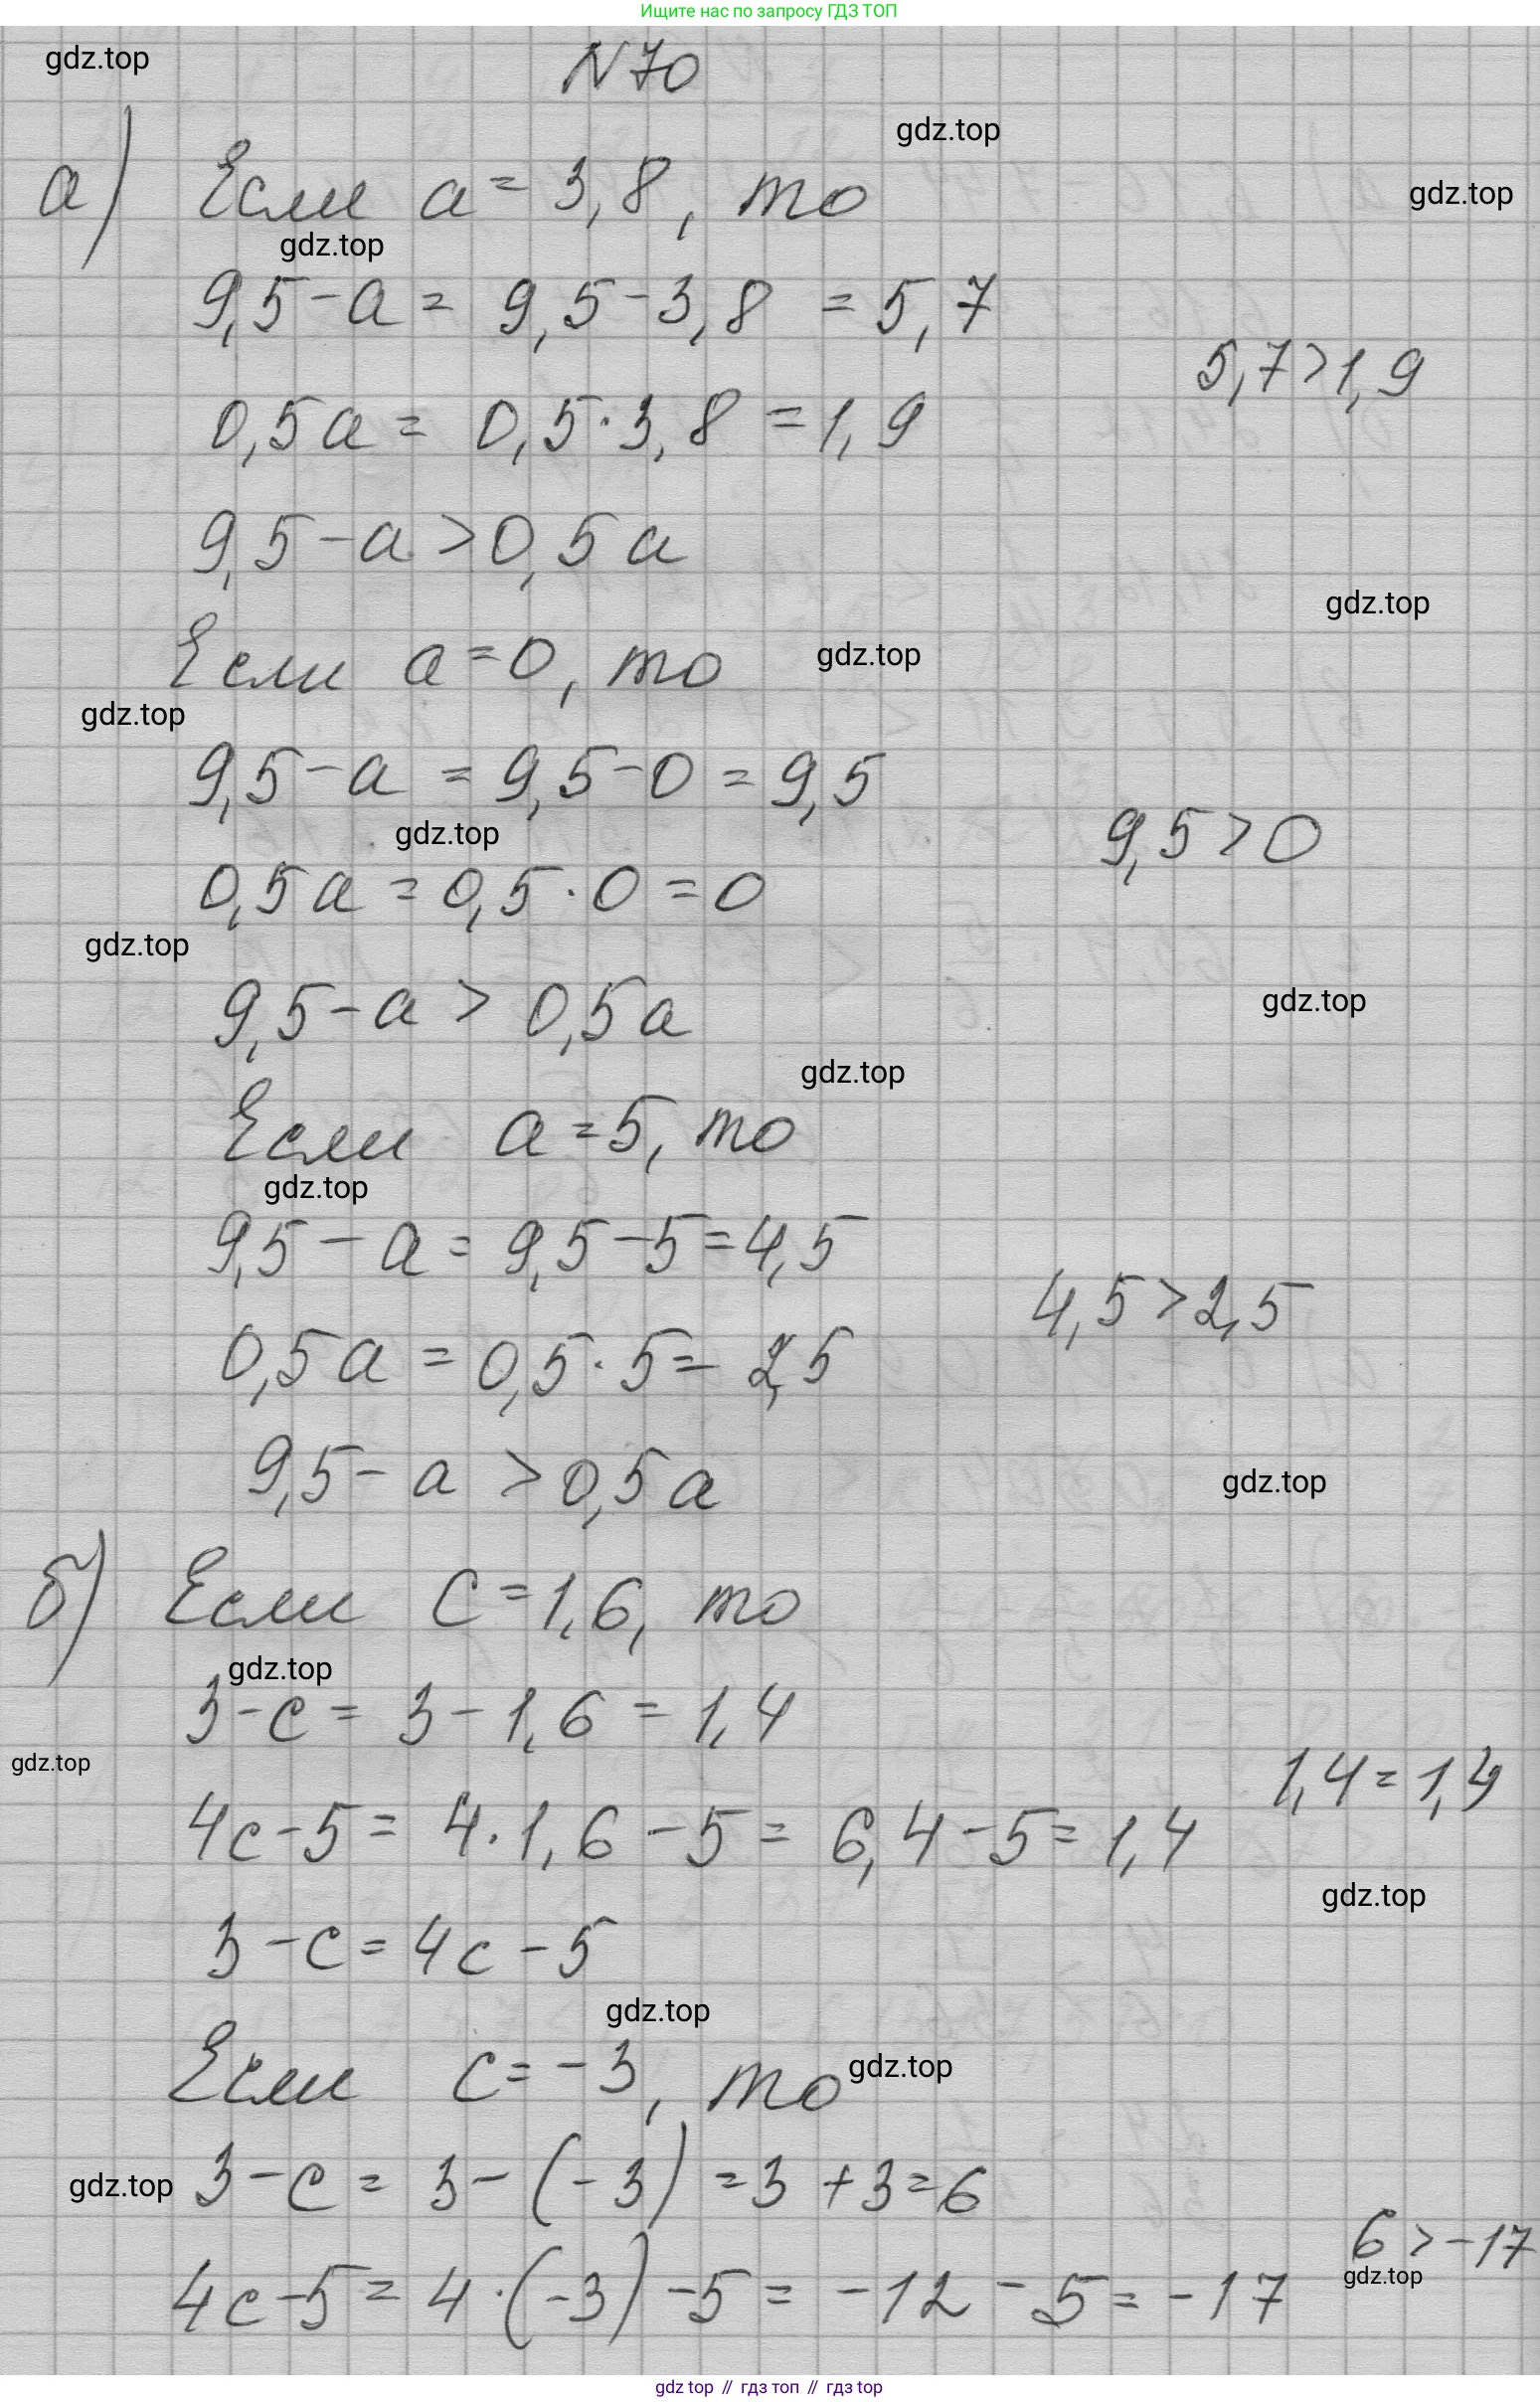 Ищите нас по запросу ГДЗ ТОП
gdz.top
N70
gdz.top
а) Если a = 3,8, то
gdz.top
gdz.top
9,5 - a = 9,5 - 3,8 = 5,7
5,7 > 1,9
0,5a = 0,5 · 3,8 = 1,9
9,5 - a > 0,5a
gdz.top
Если a = 0, то
gdz.top
gdz.top
9,5 - a = 9,5 - 0 = 9,5
gdz.top
9,5 > 0
0,5a = 0,5 · 0 = 0
gdz.top
9,5 - a > 0,5a
gdz.top
gdz.top
Если a = 5, то
gdz.top
9,5 - a = 9,5 - 5 = 4,5
4,5 > 2,5
0,5a = 0,5 · 5 = 2,5
9,5 - a > 0,5a
gdz.top
б) Если c = 1,6, то
gdz.top
3 - c = 3 - 1,6 = 1,4
gdz.top
1,4 = 1,4
4c - 5 = 4 · 1,6 - 5 = 6,4 - 5 = 1,4
gdz.top
3 - c = 4c - 5
gdz.top
Если c = -3, то
gdz.top
gdz.top
3 - c = 3 - (-3) = 3 + 3 = 6
6 > -17
gdz.top
4c - 5 = 4 · (-3) - 5 = -12 - 5 = -17
gdz top // гдз топ // гдз top